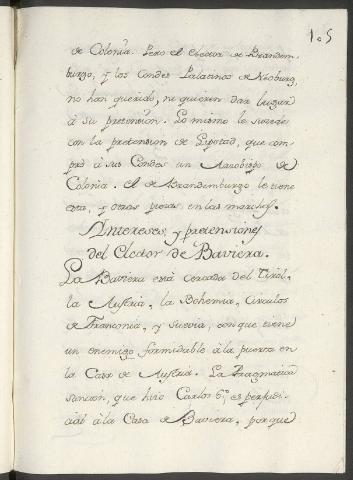 105
de Colonia. Pero el Elector de Brandem-
burgo, y los Condes Palatinos de Neoburg,
no han querido, ni quieren dar lugar
à su pretension. Lo mismo le sucede
con la pretension de Lipstad, que com-
prò à sus Condes un Arzobispo de
Colonia. El de Brandemburgo le tiene
esta, y otras piezas en las marchas.
Intereses, y pretensiones
del Elector de Baviera.
La Baviera està cercada del Tirol,
la Austria, la Bohemia, Circulos
de Franconia, y Suevia, con que tiene
un enemigo formidable à la puerta en
la Casa de Austria. La Pragmatica
sancion, que hizo Carlos 6.º es perjudi-
cial à la Casa de Baviera, porque